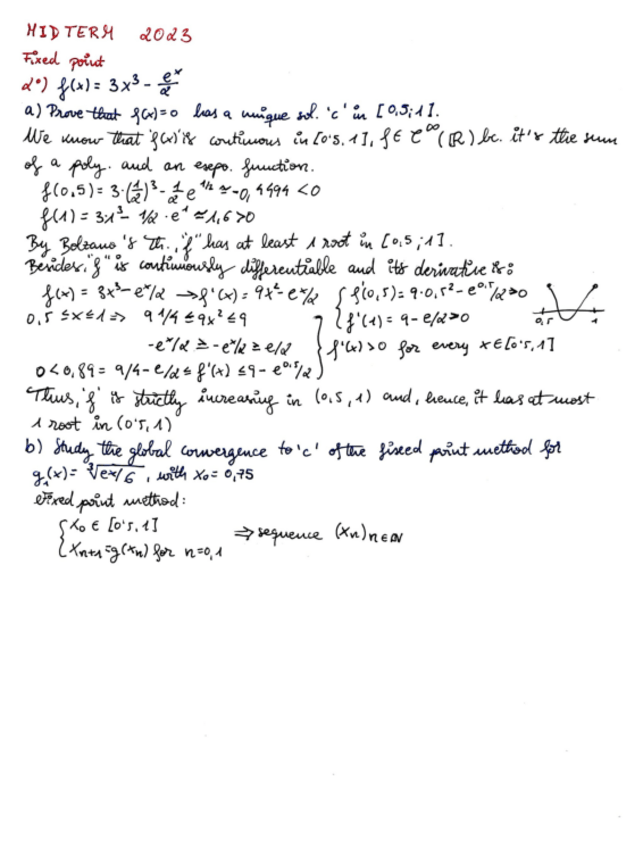 MIDTERM 2023
Fixed point
2°) f(x) = 3x³ - eˣ/2
a) Prove that f(x)=0 has a unique sol. 'c' in [0,5;1].
We know that 'f(x)' is continuous in [0'5,1], f ∈ C^∞(ℝ) bc. it's the sum
of a poly. and an expo. function.
f(0,5) = 3·(1/2)³ - 1/2 e^1/2 ≃ -0,4494 < 0
f(1) = 3·1³ - 1/2·e¹ ≃ 1,6 > 0
By Bolzano's Th., "f" has at least 1 root in [0,5;1].
Besides, "f" is continuously differentiable and its derivative is:
f(x) = 3x³ - eˣ/2 → f'(x) = 9x² - eˣ/2 { f'(0,5) = 9·0,5² - e^0,5/2 > 0
0,5 ≤ x ≤ 1 ⇒ 9 1/4 ≤ 9x² ≤ 9 f'(1) = 9 - e/2 > 0 0,5 1
-eˣ/2 ≥ -eˣ/2 ≥ e/2 } f'(x) > 0 for every x ∈ [0'5,1]
0 < 0,89 = 9/4 - e/2 ≤ f'(x) ≤ 9 - e^0,5/2
Thus, 'f' is strictly increasing in (0,5,1) and, hence, it has at most
1 root in (0'5,1)
b) Study the global convergence to 'c' of the fixed point method for
g₁(x) = ³√eˣ/6, with x₀ = 0,75
Fixed point method:
{ x₀ ∈ [0'5,1] ⇒ sequence (xₙ)n∈ℕ
xₙ₊₁ = g(xₙ) for n=0,1